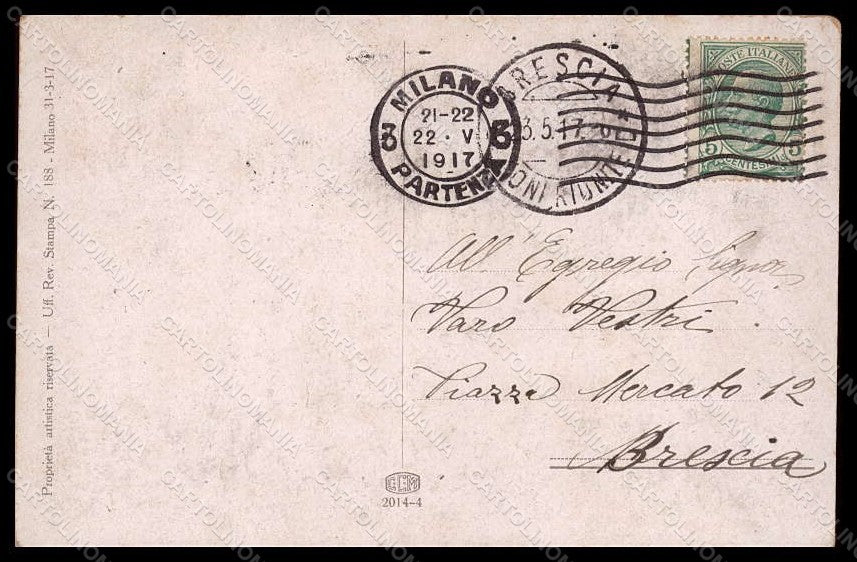 Proprietà artistica riservata — Uff. Rev. Stampa N. 188 - Milano 31-3-17
MILANO
21-22
22 · V
1917
PARTENZA
3 3
BRESCIA
3.5.17
POSTE ITALIANE
5 5
CENTESIMI
All' Egregio Signor
Varo Vestri
Piazza Mercato 12
Brescia
CCM
2014-4
CARTOLINOMANIA